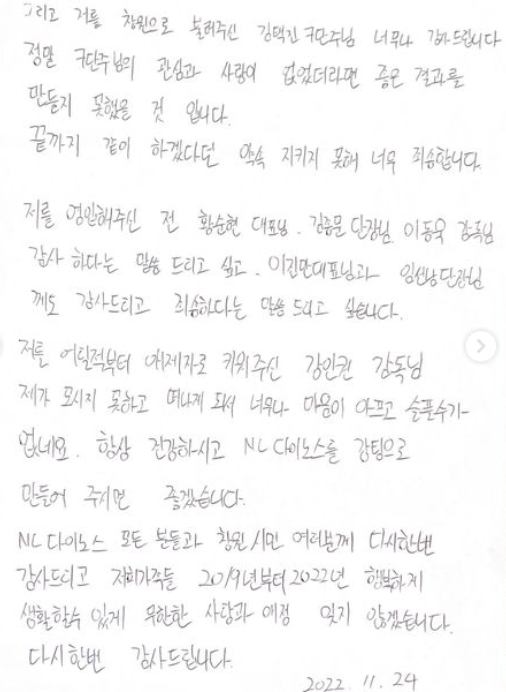 그리고 저를 창원으로 불러주신 김택진 구단주님 너무나 감사드립니다
정말 구단주님의 관심과 사랑이 없었더라면 좋은 결과를
만들지 못했을 것 입니다.
끝까지 같이 하겠다던 약속 지키지 못해 너무 죄송합니다.
저를 영입해주신 전 황순현 대표님. 김종문 단장님. 이동욱 감독님
감사 하다는 말씀 드리고 싶고. 이진만대표님과 임선남단장님
께도 감사드리고 죄송하다는 말씀 드리고 싶습니다.
저를 어릴적부터 애제자로 키워주신 강인권 감독님
제가 모시지 못하고 떠나게 되서 너무나 마음이 아프고 슬플수가
없네요. 항상 건강하시고 NC 다이노스를 강팀으로
만들어 주시면 좋겠습니다.
NC 다이노스 모든 분들과 창원 시민 여러분께 다시한번
감사드리고 저희가족들 2019년부터 2022년 행복하게
생활할수 있게 무한한 사랑과 애정 잊지 않겠습니다.
다시한번 감사드립니다.
2022. 11. 24